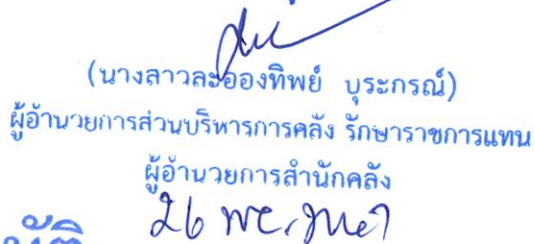 (นางสาวละอองทิพย์ บุระกรณ์)
ผู้อำนวยการส่วนบริหารการคลัง รักษาราชการแทน
ผู้อำนวยการสำนักคลัง
26